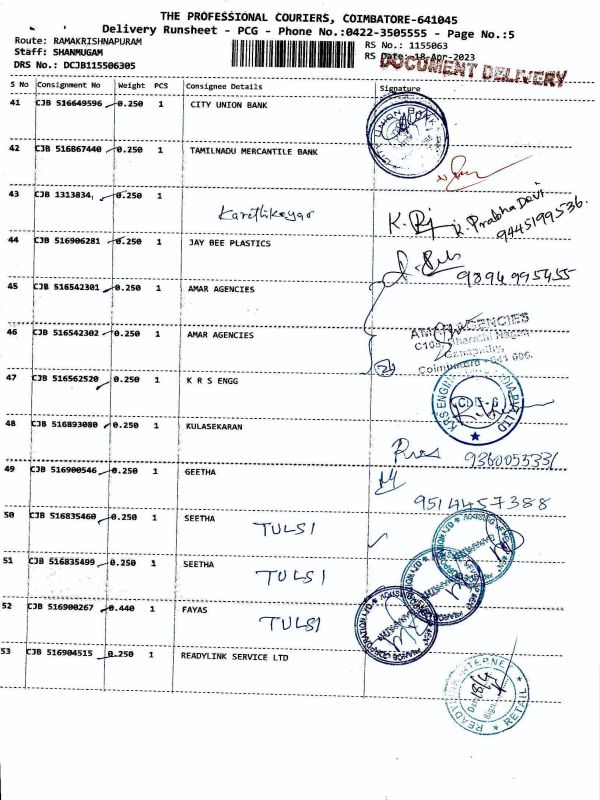 THE PROFESSIONAL COURIERS, COIMBATORE-641045
Delivery Runsheet - PCG - Phone No.:0422-3505555 - Page No.:5
Route: RAMAKRISHNAPURAM
RS No.: 1155063
Staff: SHANMUGAM
RS Date: 18-Apr-2023
DRS No.: DCJB115506305
DOCUMENT DELIVERY
S No Consignment No Weight PCS Consignee Details Signature
41 CJB 516649596 0.250 1 CITY UNION BANK
42 CJB 516867440 0.250 1 TAMILNADU MERCANTILE BANK
43 CJB 1313834 0.250 1
Karthikeyan
K. Prabha Devi
9445199536.
44 CJB 516906281 0.250 1 JAY BEE PLASTICS
9894995455
45 CJB 516542301 0.250 1 AMAR AGENCIES
46 CJB 516542302 0.250 1 AMAR AGENCIES
AMAR AGENCIES
Bharathi Nagar
Ganapathy
Coimbatore - 641 006.
47 CJB 516562520 0.250 1 K R S ENGG
48 CJB 516893080 0.250 1 KULASEKARAN
9360055331
49 CJB 516900546 0.250 1 GEETHA
9514457388
50 CJB 516835460 0.250 1 SEETHA
TULSI
51 CJB 516835499 0.250 1 SEETHA
TULSI
52 CJB 516900267 0.440 1 FAYAS
TULSI
53 CJB 516904515 0.250 1 READYLINK SERVICE LTD